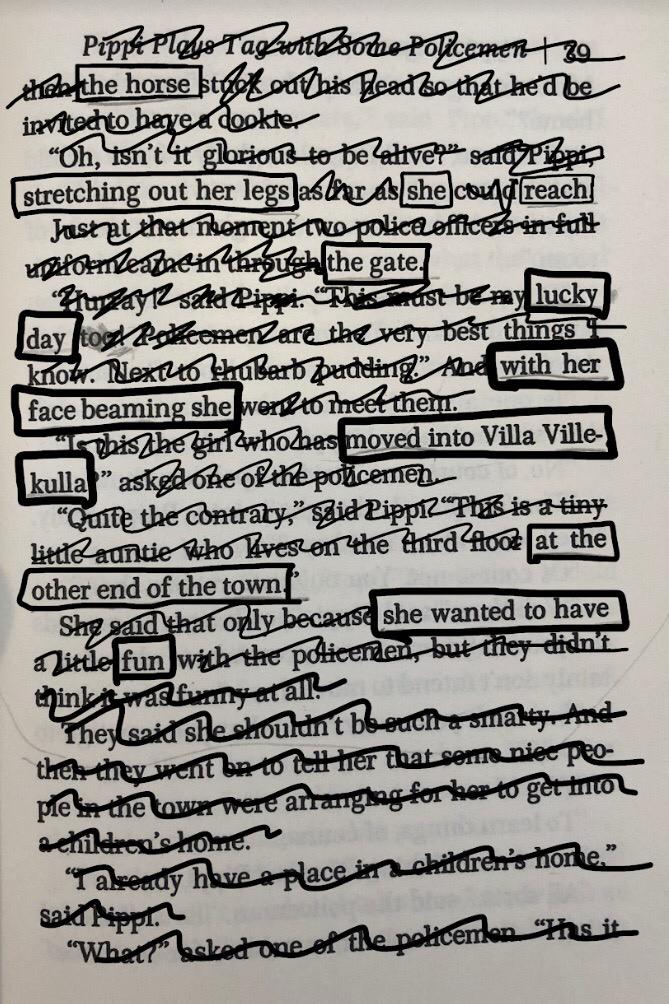 Pippi Plays Tag with Some Policemen | 39
then the horse stuck out his head so that he'd be
invited to have a cookie.
"Oh, isn't it glorious to be alive?" said Pippi,
stretching out her legs as far as she could reach.
Just at that moment two police officers in full
uniform came in through the gate.
"Hurray!" said Pippi. "This must be my lucky
day too! Policemen are the very best things I
know. Next to rhubarb pudding." And with her
face beaming she went to meet them.
"Is this the girl who has moved into Villa Ville-
kulla?" asked one of the policemen.
"Quite the contrary," said Pippi. "This is a tiny
little auntie who lives on the third floor at the
other end of the town."
She said that only because she wanted to have
a little fun with the policemen, but they didn't
think it was funny at all.
They said she shouldn't be such a smarty. And
then they went on to tell her that some nice peo-
ple in the town were arranging for her to get into
a children's home.
"I already have a place in a children's home,"
said Pippi.
"What?" asked one of the policemen. "Has it